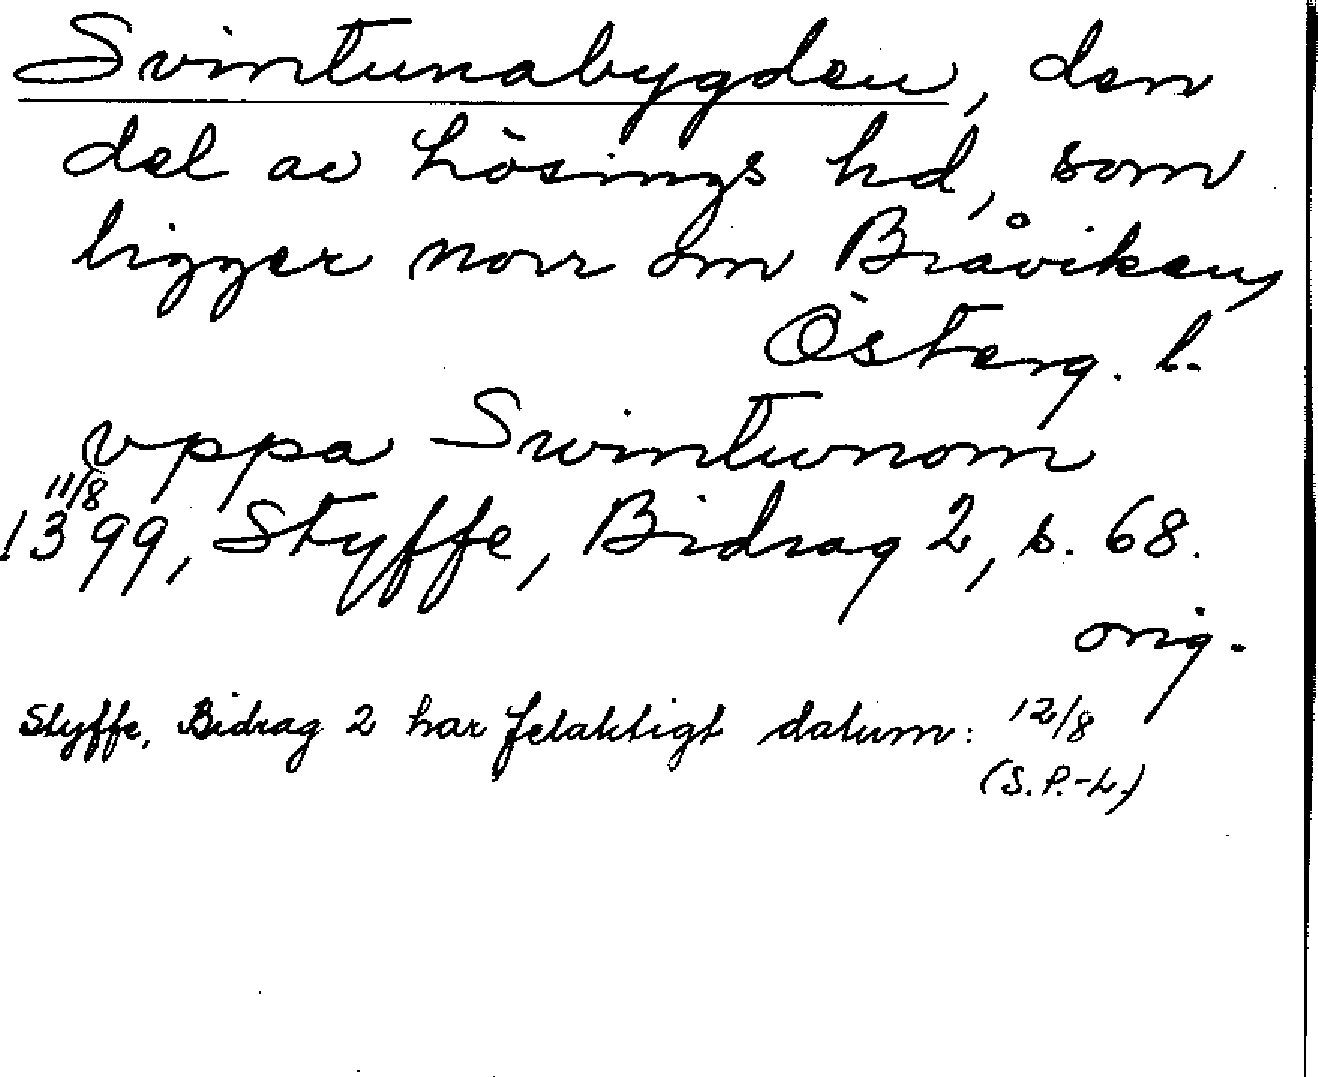 Svintunabygden, den
del av Lösings hd, som
ligger norr om Bråviken,
Österg. l.
vppa Swintunom
11/8
1399, Styffe, Bidrag 2, s. 68.
orig.
Styffe, Bidrag 2 har felaktigt datum: 12/8
(S. P.-L.)